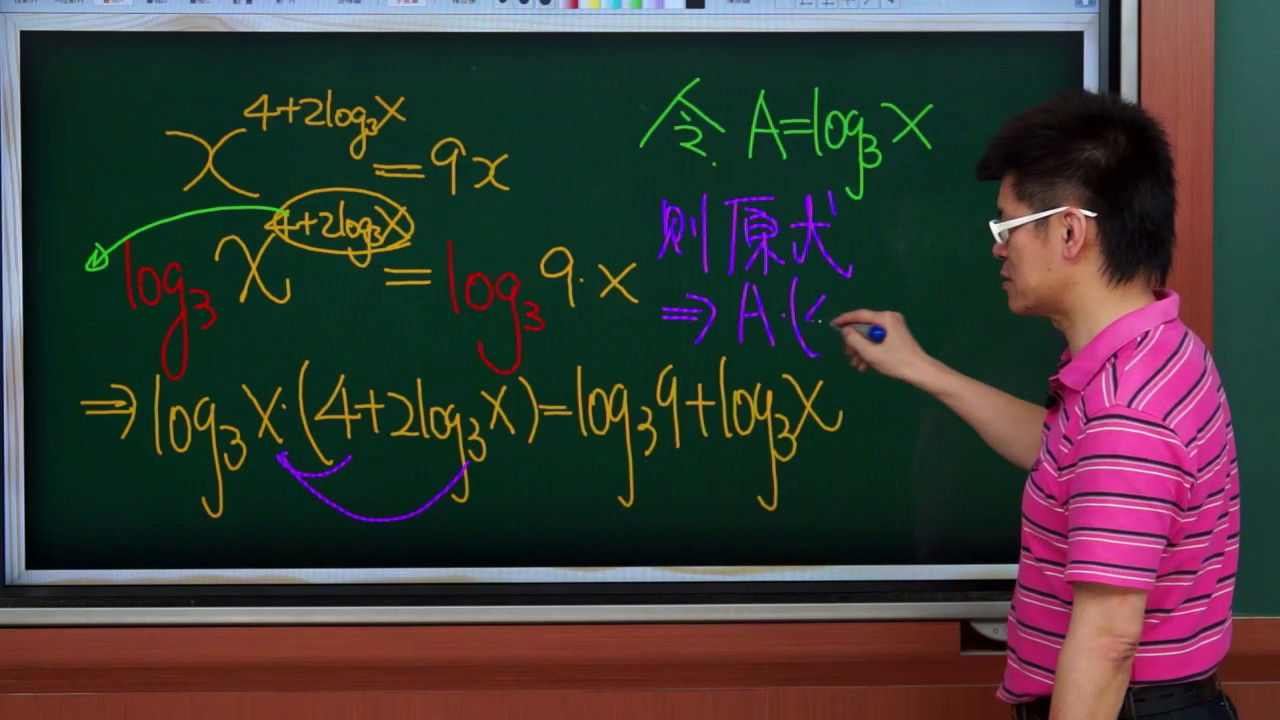 x^{4+2log₃x} = 9x
log₃ x^{4+2log₃x} = log₃ 9·x
⇒ log₃x·(4+2log₃x)=log₃9+log₃x
令 A=log₃x
则原式
⇒ A·(